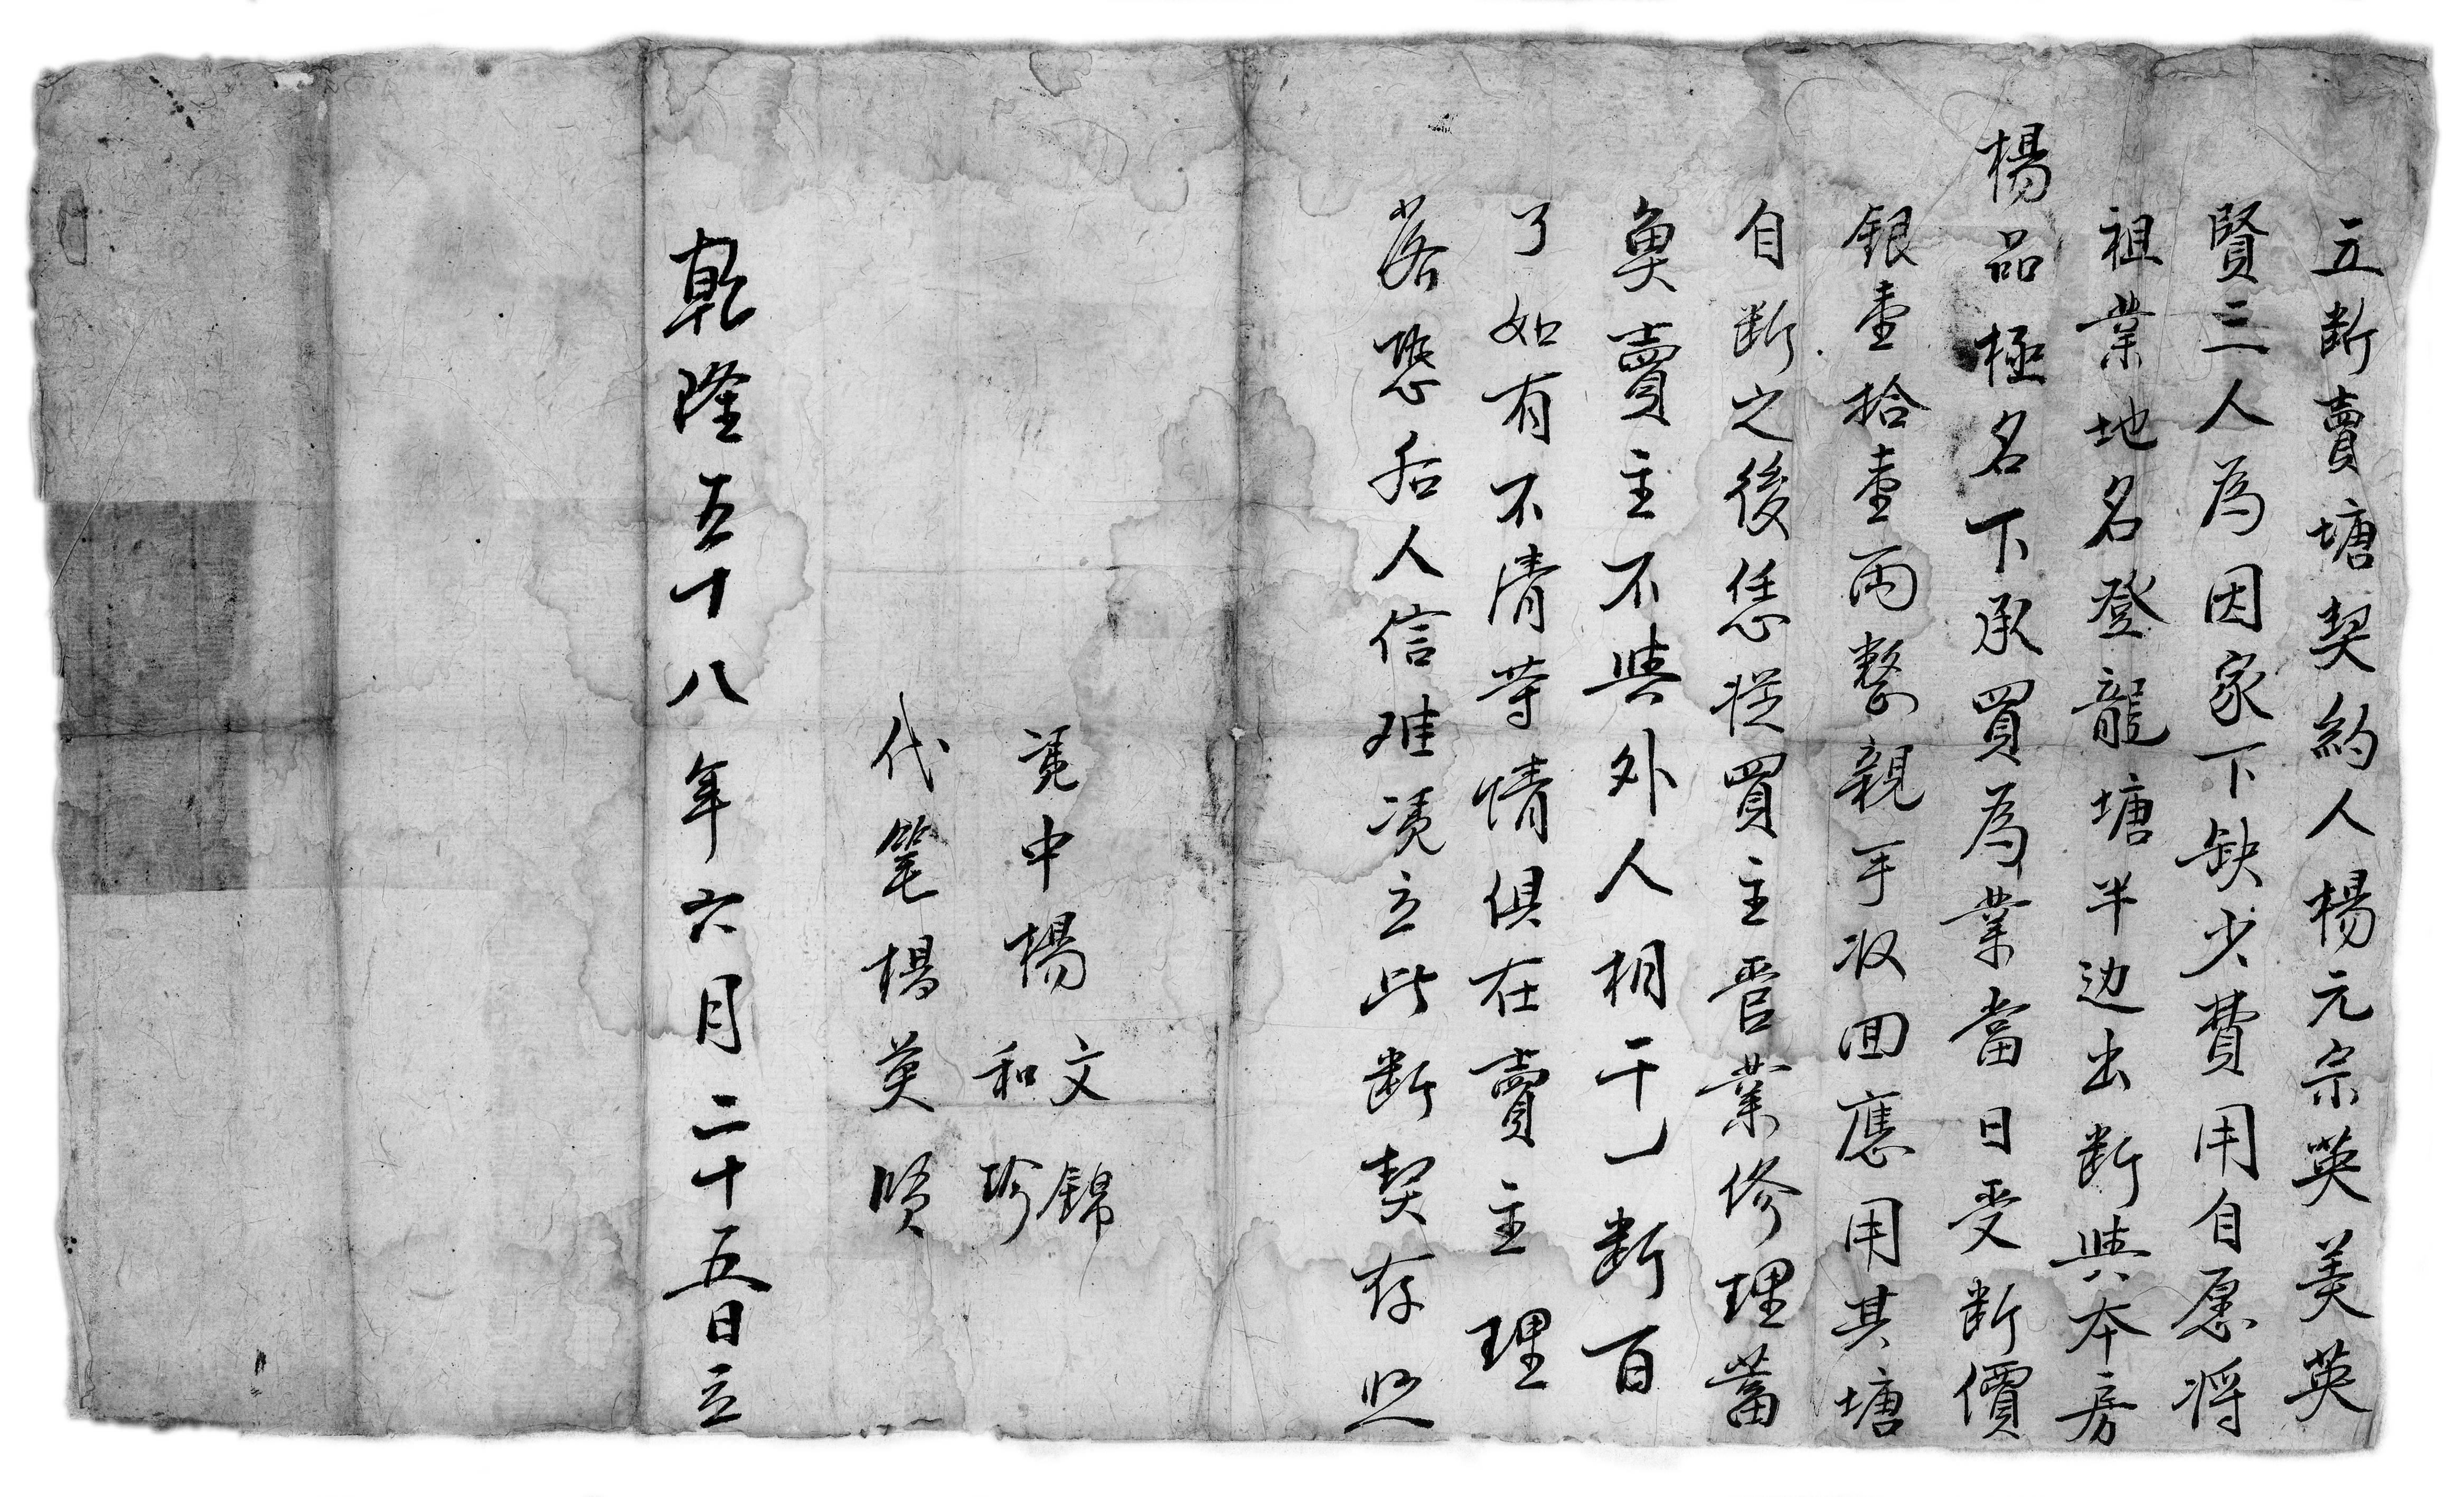 立断賣塘契約人楊元宗英美英
賢三人為因家下缺少費用自愿将
祖業地名登龍塘半边出断與本房
楊品極名下承買為業當日受断價
銀壹拾壹両整親手收回應用其塘
自断之後恁從買主管業修理蓄
魚賣主不與外人相干一断百
了如有不清等情俱在賣主理
落恐后人信难凴立此断契存照
凴中楊文錦
和珍
代筆楊英賢
乾隆五十八年六月二十五日立